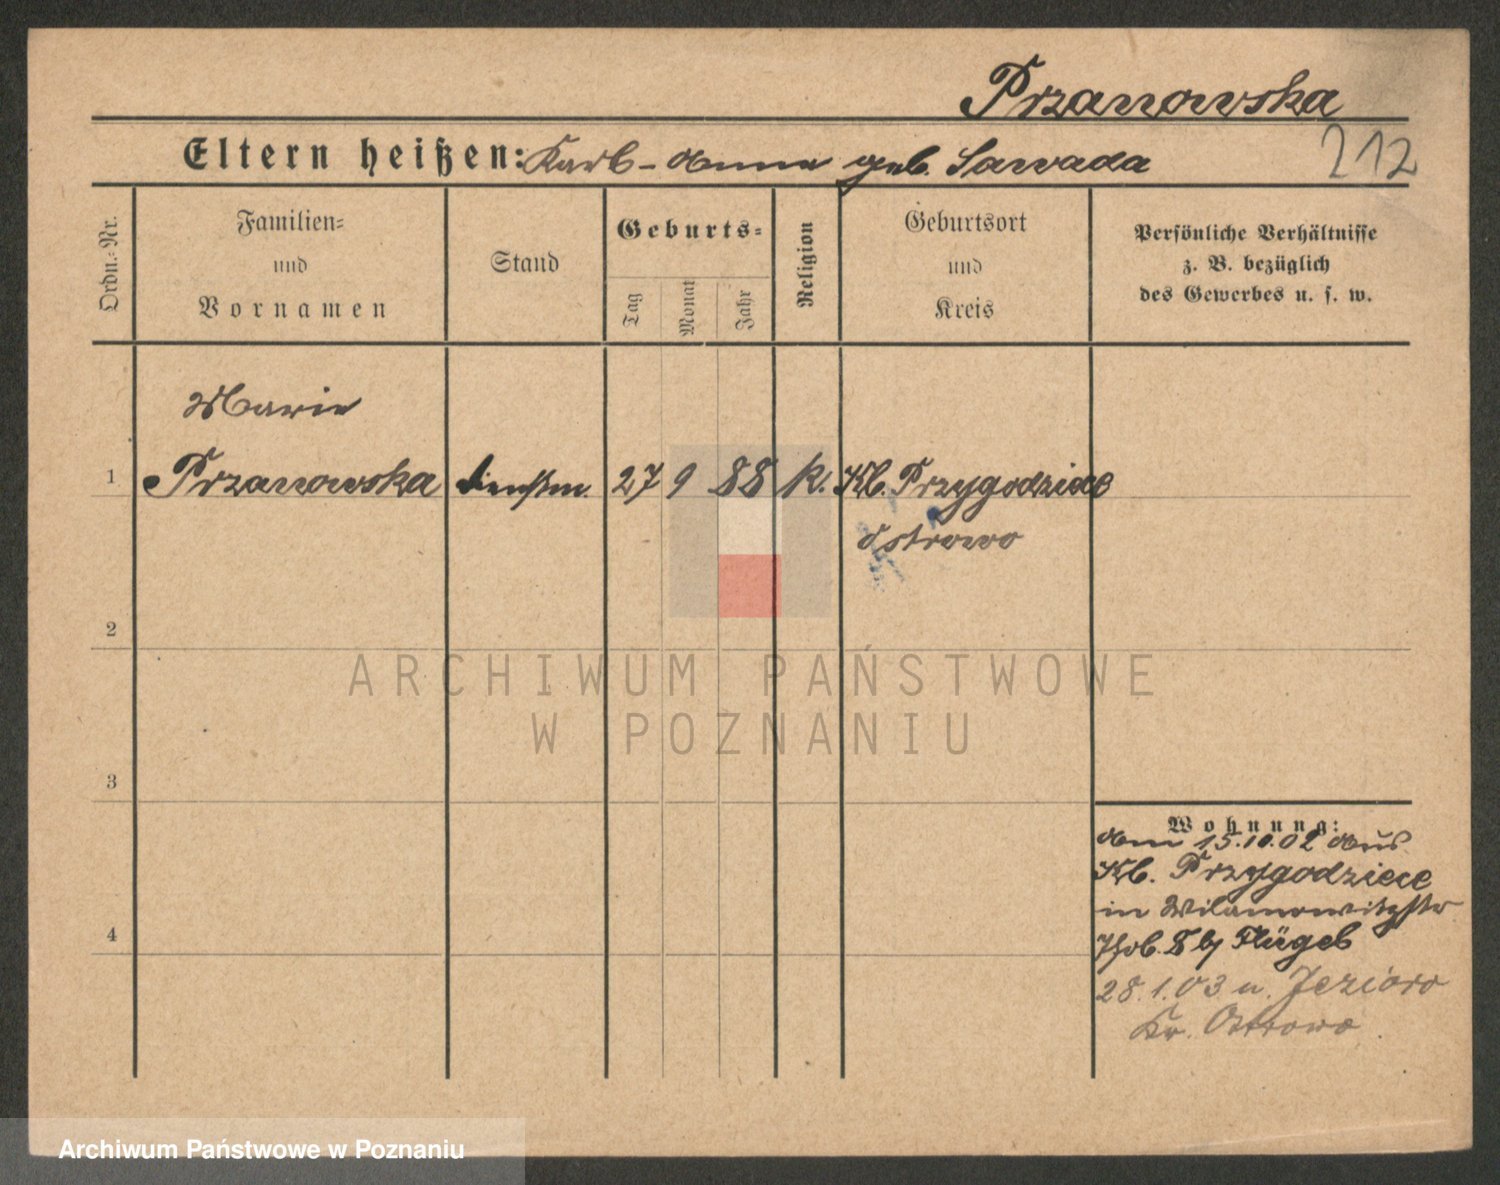 Przanowska
212
Eltern heißen: Karl - Anna geb. Sawada
Ordn.-Nr.
Familien-
und
Vornamen
Stand
Geburts-
Tag
Monat
Jahr
Religion
Geburtsort
und
Kreis
Persönliche Verhältnisse
z. B. bezüglich
des Gewerbes u. s. w.
Marie
1 Przanowska dienstm. 27 9 88 k. Kl. Przygodzice
Ostrowo
2
3
4
Wohnung:
am 15.10.02 aus
Kl. Przygodzice
in Wilamowitzstr
Flügel
28.1.03 n. Jezioro
Kr. Ostrowo
ARCHIWUM PAŃSTWOWE
W POZNANIU
Archiwum Państwowe w Poznaniu